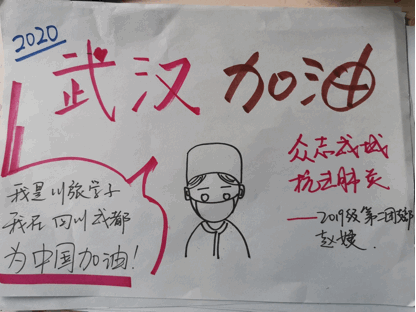 2020
武汉加油
众志成城
抗击肺炎
——2019级第二团总
赵媛
我是川旅学子
我在四川成都
为中国加油!